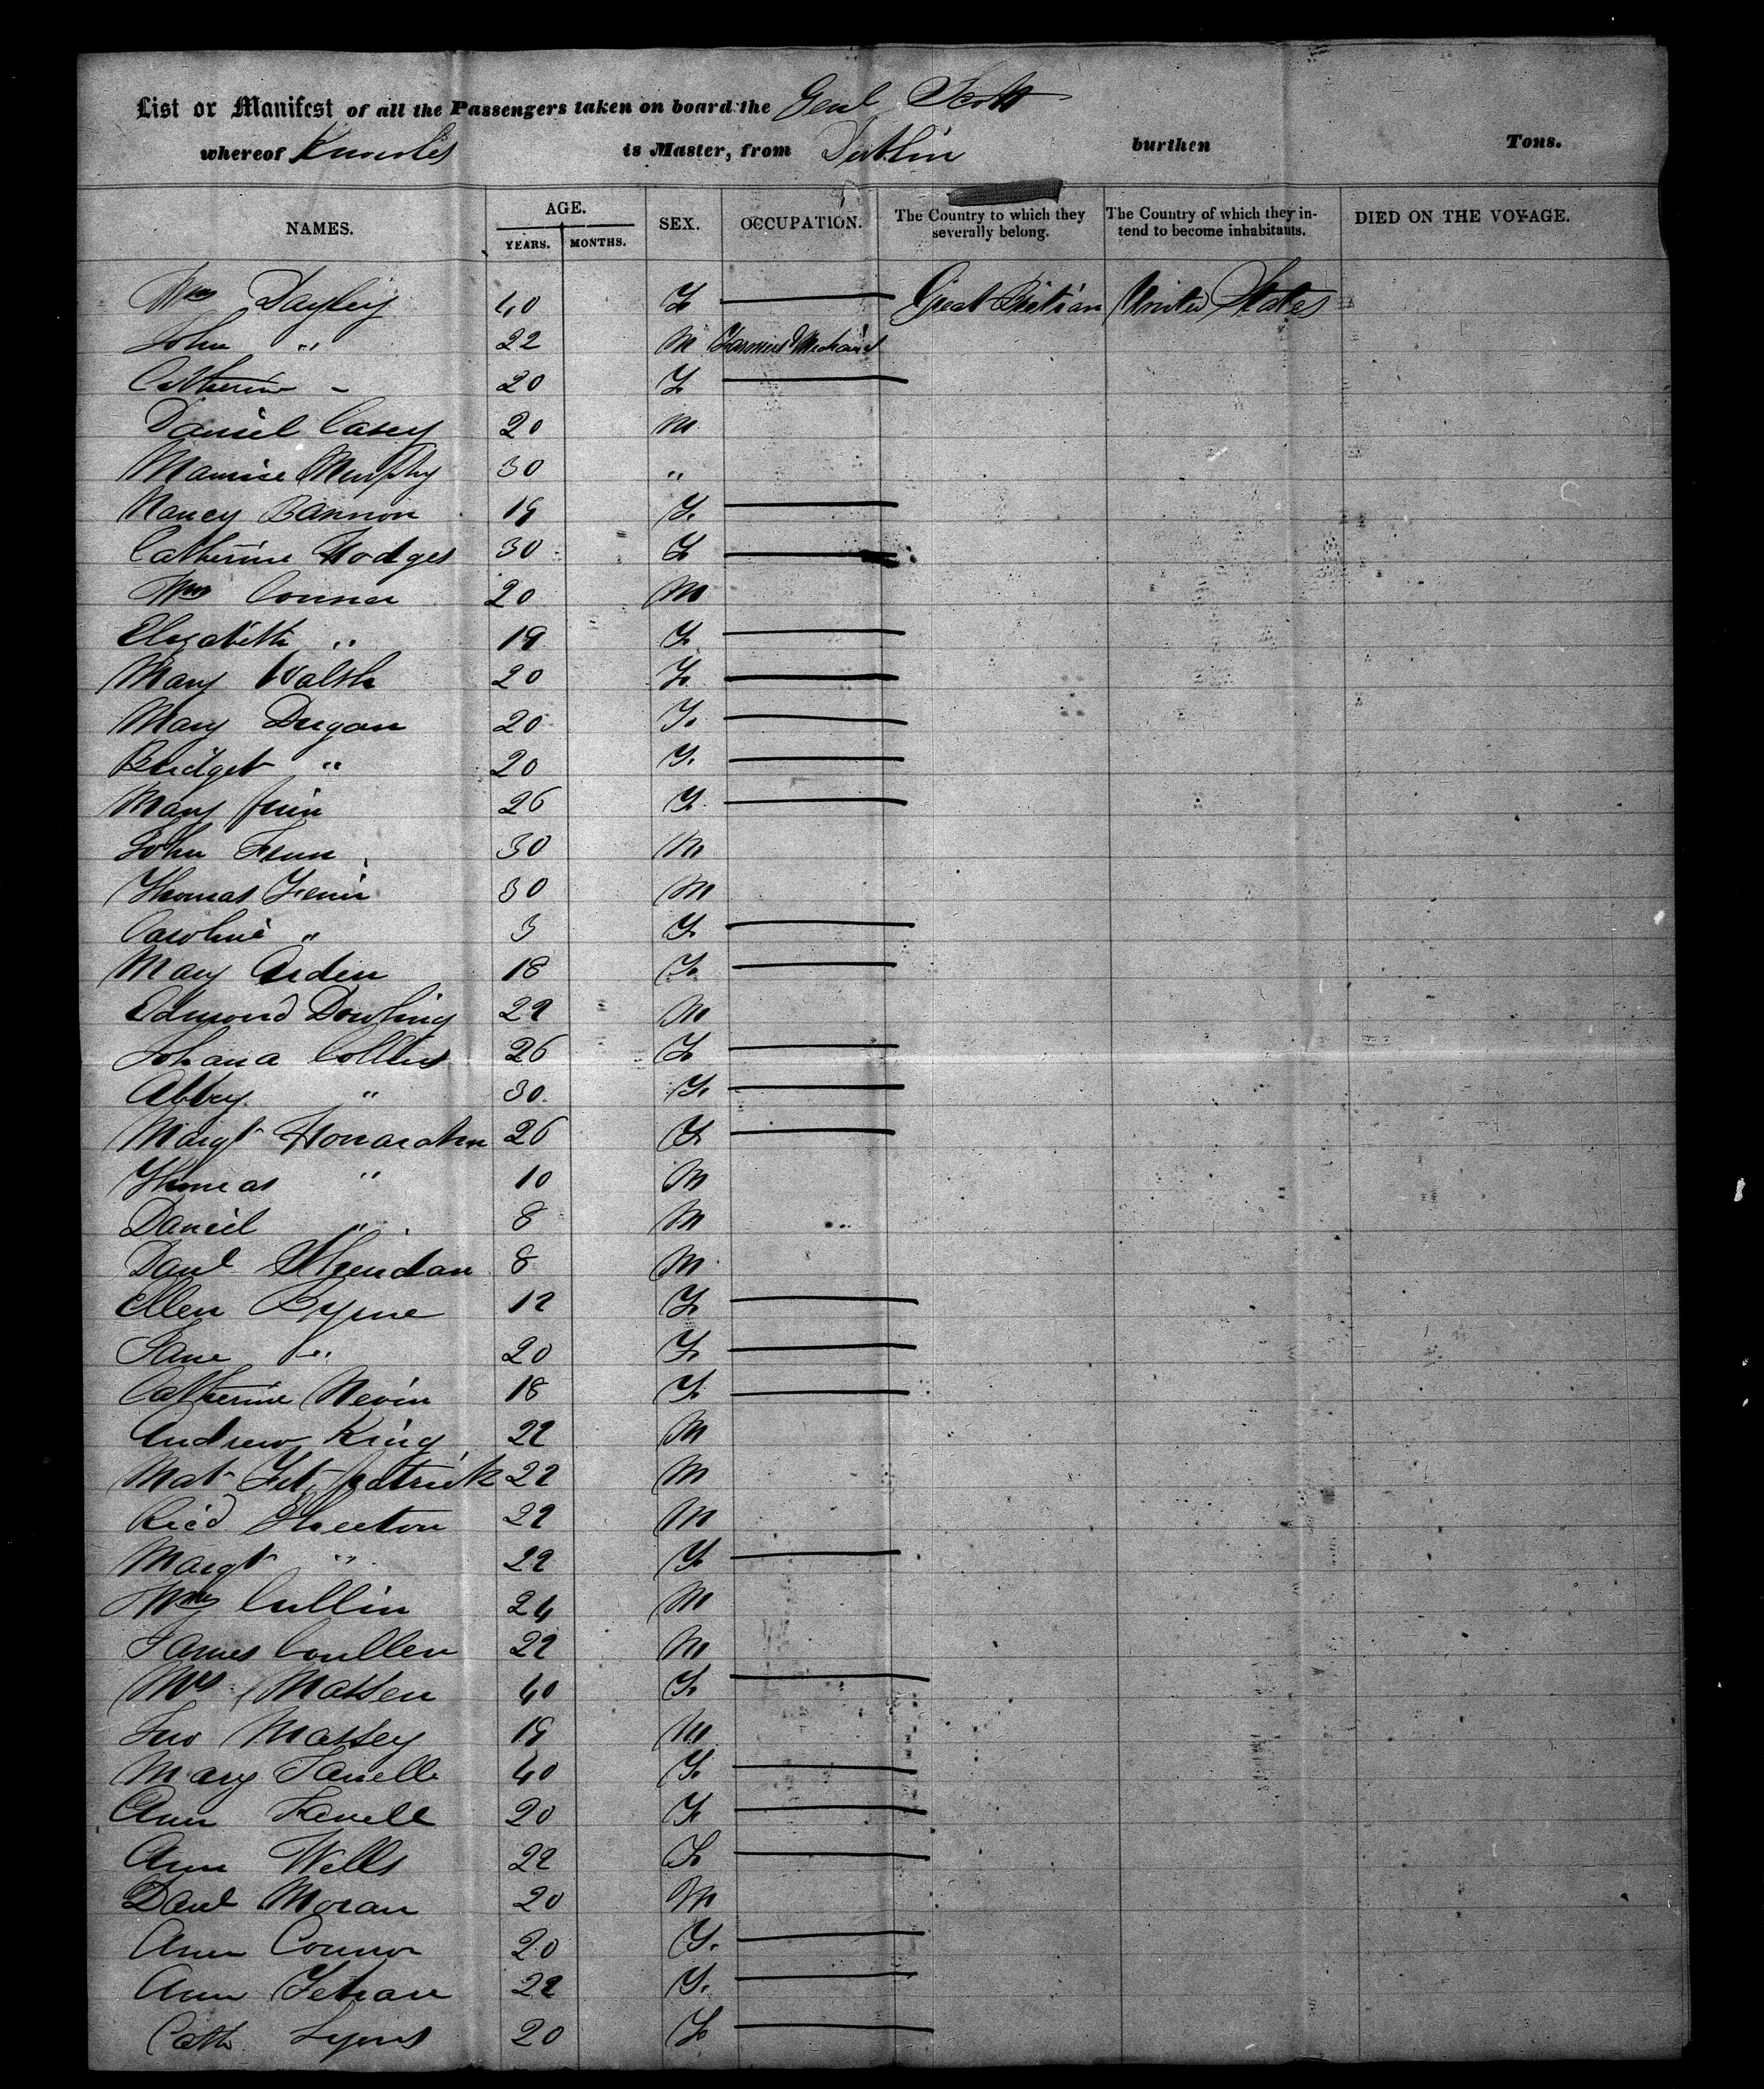 List or Manifest of all the Passengers taken on board the Genl Scott
whereof Knowles is Master, from Dublin burthen Tons.
NAMES. AGE. YEARS. MONTHS. SEX. OCCUPATION. The Country to which they severally belong. The Country of which they intend to become inhabitants. DIED ON THE VOYAGE.
Dayley 40 F Great Britian United States
John " 22 M Farmers
Catherine " 20 F
Daniel Casey 20 M
Maurice Murphy 30 "
Nancy Bannon 19 F
Catherine Hodges 30 F
Wm Conner 20 M
Elizabeth " 19 F
Mary Walsh 20 F
Mary Dugan 20 F
Bridget " 20 F
Mary 26 F
John Fenn 30 M
Thomas Fenn 30 M
Caroline " 3 F
Mary Arden 18 F
Edmond Dowling 22 M
Johana Collins 26 F
Abbey " 30 F
Margt Honarahn 26 F
Thomas " 10 M
Daniel " 8 M
Danl Sheridan 8 M
Ellen Byrne 12 F
Jane " 20 F
Catherine Nevin 18 F
Andrew King 22 M
Mat Fitzpatrick 22 M
Ricd 22 M
Margt " 22 F
Wm Cullin 24 M
James Coullen 22 M
Mrs Massen 40 F
Jno Massey 19 M
Mary Farrelle 40 F
Ann Farrell 20 F
Ann Wells 22 F
Danl Moran 20 M
Ann Connor 20 F
Ann Fehan 22 F
Cath Lyons 20 F